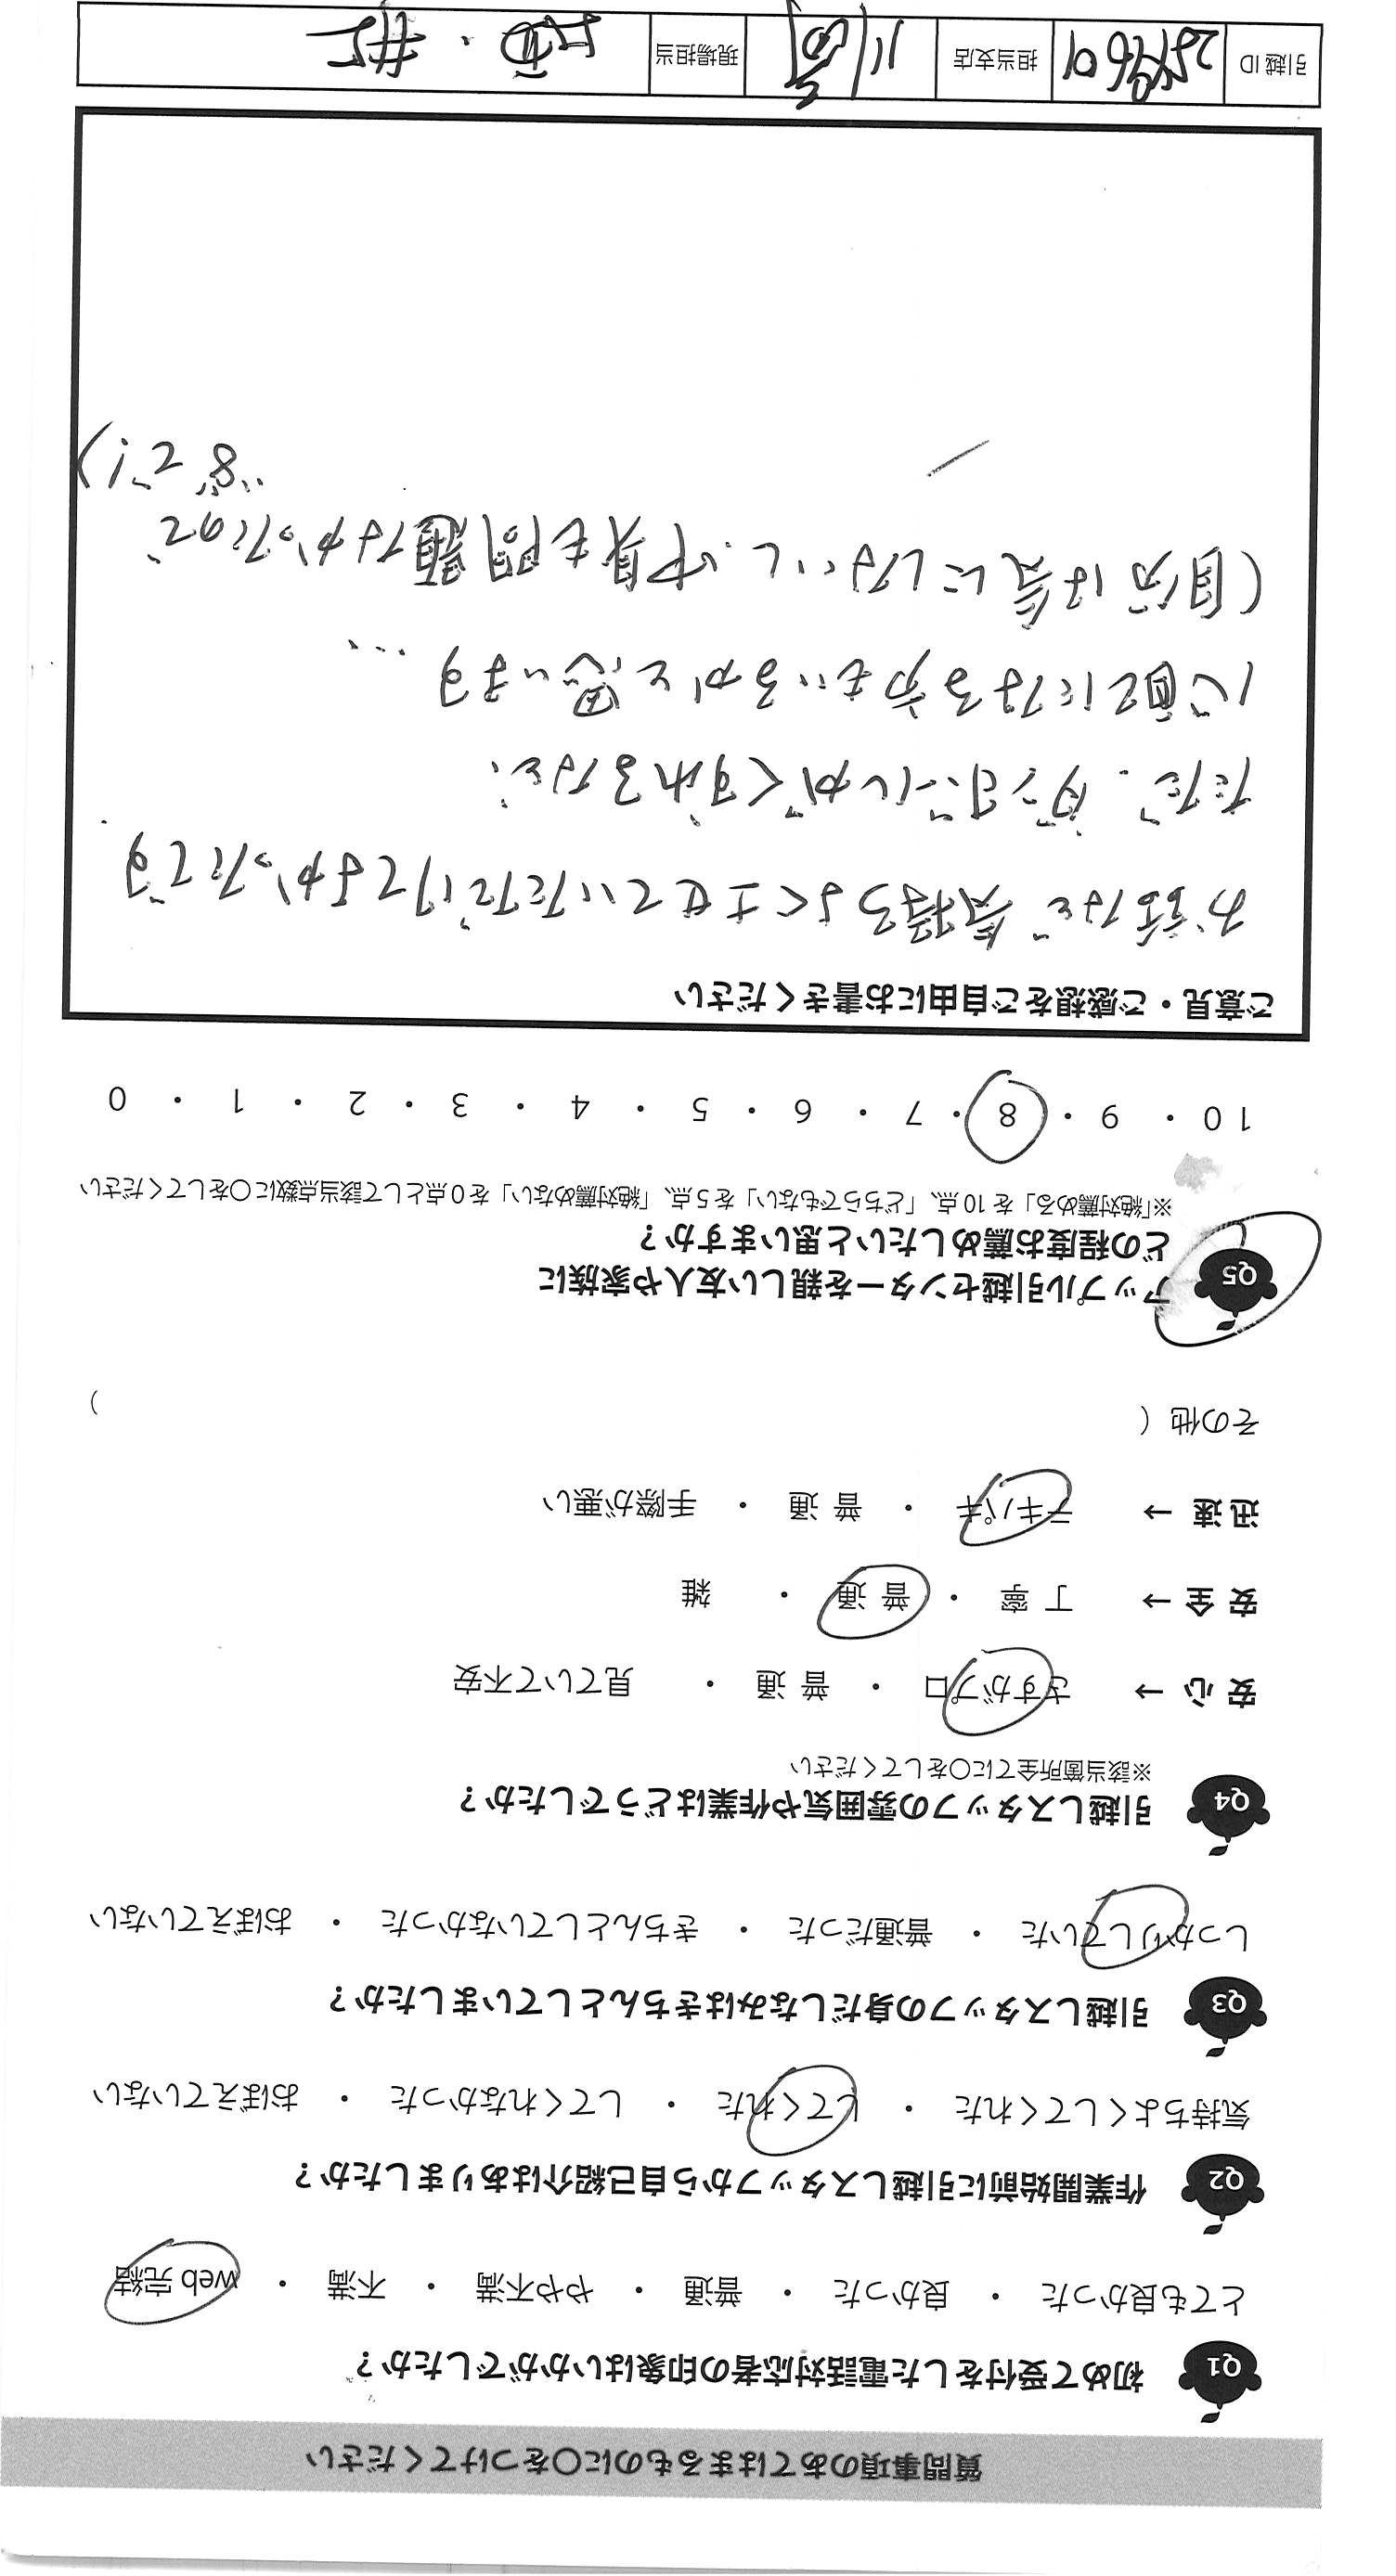 質問事項のあてはまるものに〇をつけてください
Q1 初めて受付をした電話対応者の印象はいかがでしたか？
とても良かった ・ 良かった ・ 普通 ・ やや不満 ・ 不満 ・ web 完結
Q2 作業開始前に引越しスタッフから自己紹介はありましたか？
気持ちよくしてくれた ・ してくれた ・ してくれなかった ・ おぼえていない
Q3 引越しスタッフの身だしなみはきちんとしていましたか？
しっかりしていた ・ 普通だった ・ きちんとしていなかった ・ おぼえていない
Q4 引越しスタッフの雰囲気や作業はどうでしたか？
※該当箇所全てに〇をしてください
安 心 → さすがプロ ・ 普 通 ・ 見ていて不安
安 全 → 丁 寧 ・ 普 通 ・ 雑
迅 速 → テキパキ ・ 普 通 ・ 手際が悪い
その他（ ）
Q5 アップル引越センターを親しい友人や家族に
どの程度お薦めしたいと思いますか？
※「絶対薦める」を 10 点、「どちらでもない」を 5 点、「絶対薦めない」を 0 点として該当点数に〇をしてください
10 ・ 9 ・ 8 ・ 7 ・ 6 ・ 5 ・ 4 ・ 3 ・ 2 ・ 1 ・ 0
ご意見・ご感想をご自由にお書きください
お話など気持ちよくさせていただけてよかったです
ただ、ダンボールがくずれるなど、
心配になる方もいるかと思います…
(自分は気にしないし、中身も問題なかったので
8で！)
引越 ID 担当支店 現場担当